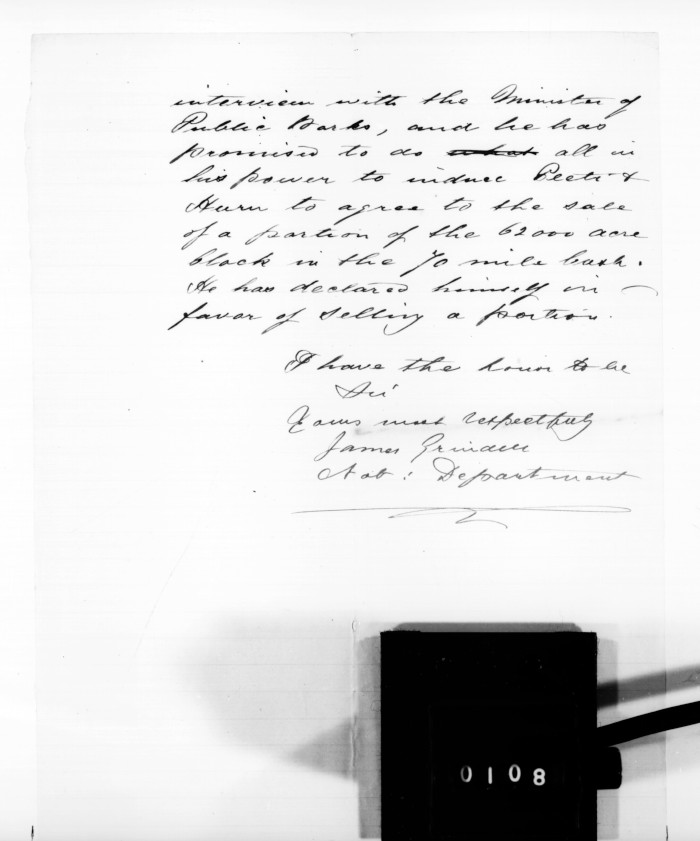 interview with the Minister of
Public Works, and he has
promised to do what all in
his power to induce Peeti &
Hurn to agree to the sale
of a portion of the 62000 acre
block in the 70 mile bush.
He has declared himself in
favor of selling a portion.
I have the honor to be
Sir
Yours most respectfully
James Grindell
Nat: Department
0108